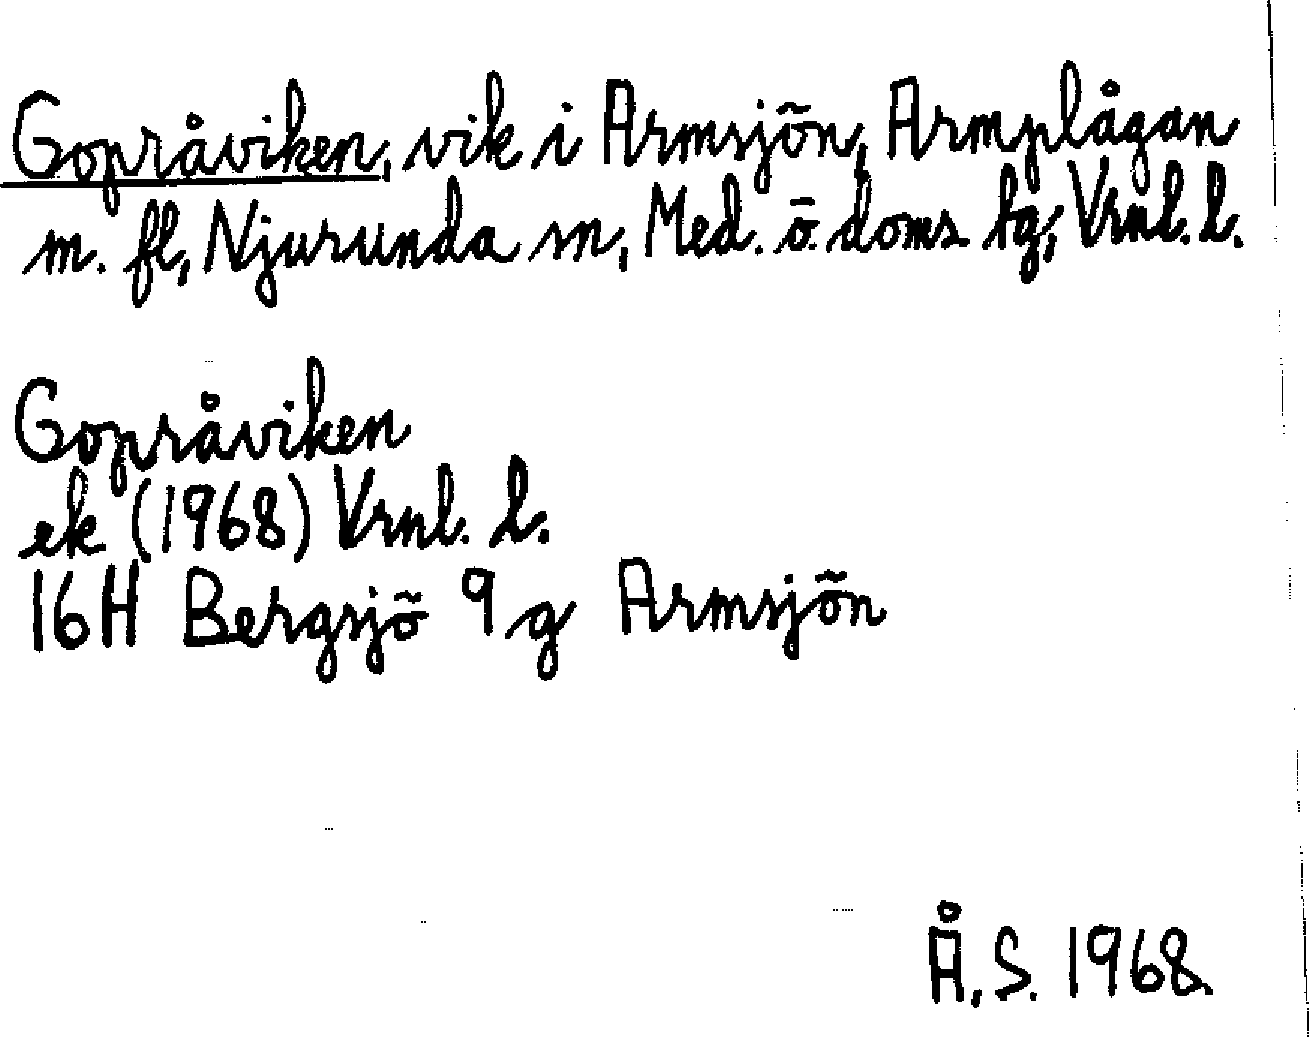 Gopråviken, vik i Armsjön, Armplågan
m. fl, Njurunda sn, Med. ö. doms. tg, Vrnl. l.
Gopråviken
ek (1968) Vrnl. l.
16H Bergsjö 9g Armsjön
Å.S. 1968